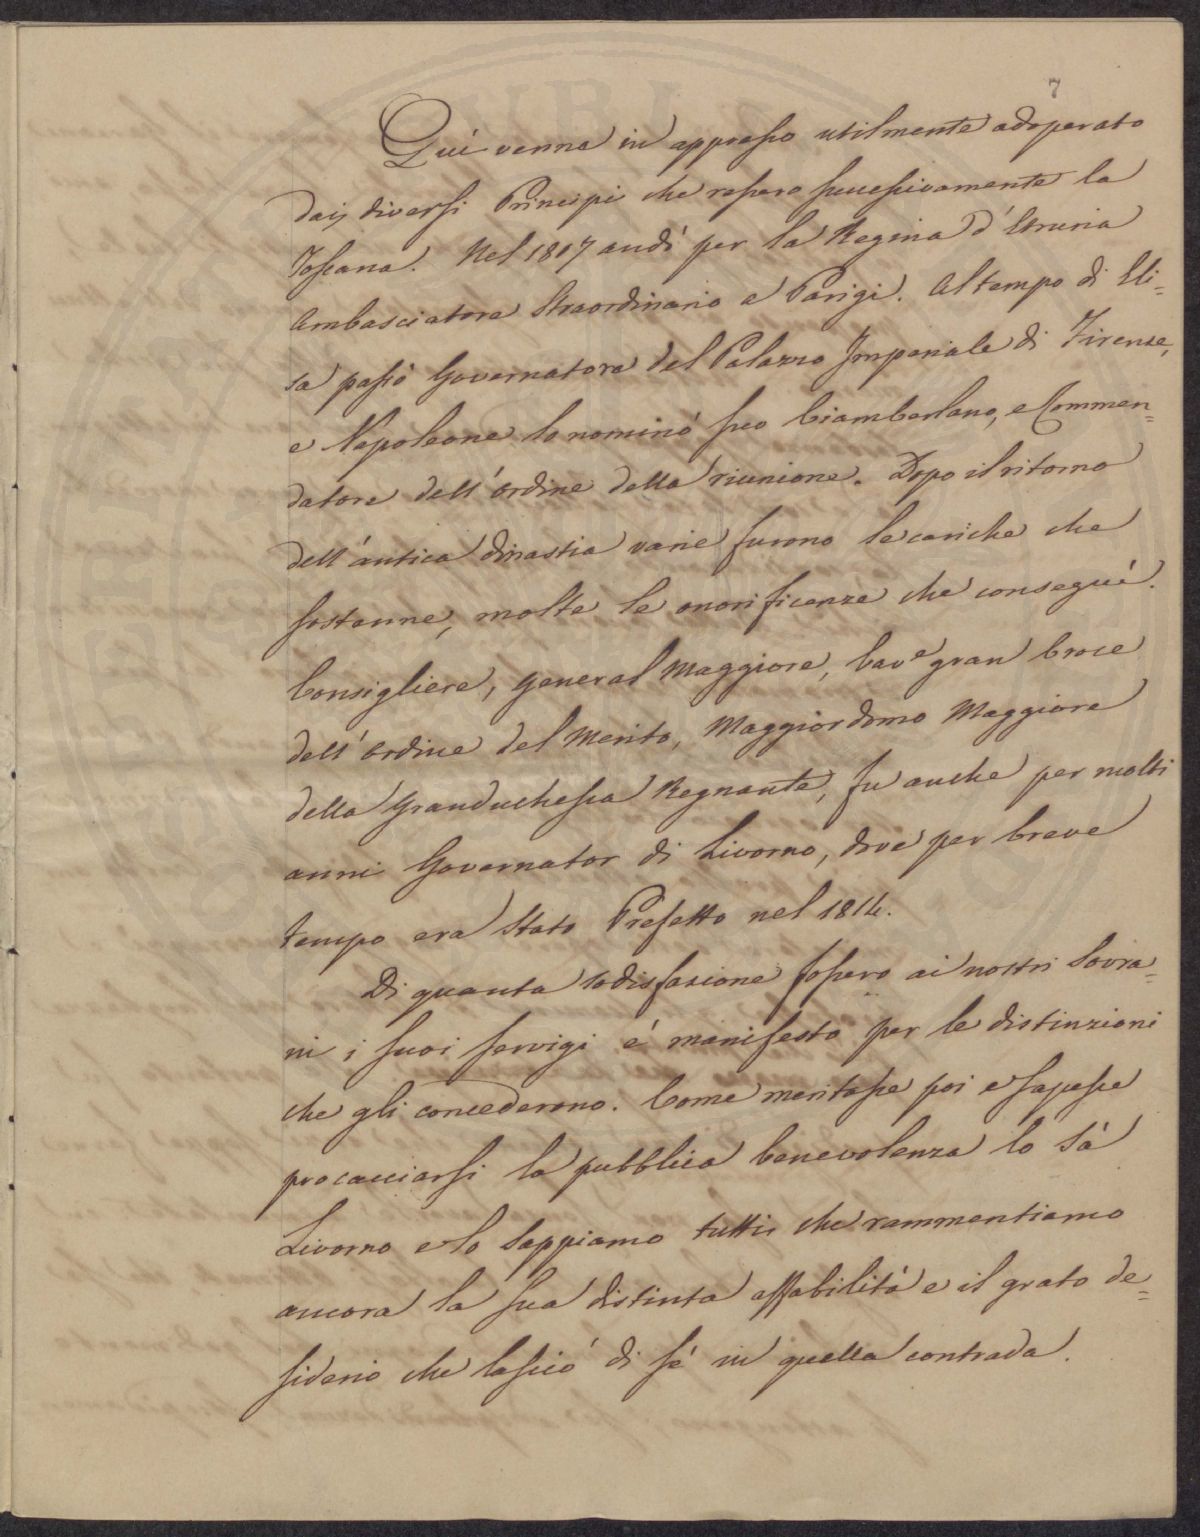 7
Quì venne in appresso utilmente adoperato
dai diversi Principi che ressero successivamente la
Toscana. Nel 1807 andò per la Regina d'Etruria
Ambasciatore Straordinario a Parigi. Al tempo di Eli=
sa passò Governatore del Palazzo Imperiale di Firenze,
e Napoleone lo nominò suo Ciamberlano, e Commen=
datore dell'ordine della riunione. Dopo il ritorno
dell'antica dinastia varie furono le cariche che
sostenne, molte le onorificenze che conseguì.
Consigliere, General Maggiore, Cav.e gran Croce
dell'ordine del Merito, Maggiordomo Maggiore
della Granduchessa Regnante, fu anche per molti
anni Governator di Livorno, dove per breve
tempo era Stato Prefetto nel 1814.
Di quanta sodisfazione fossero ai nostri Sovra=
ni i suoi servigi é manifesto per le distinzioni
che gli concederono. Come meritasse poi e sapesse
procacciarsi la pubblica benevolenza lo sà
Livorno e lo Sappiamo tutti che rammentiamo
ancora la sua distinta affabilità e il grato de=
siderio che lasciò di sé in quella contrada.